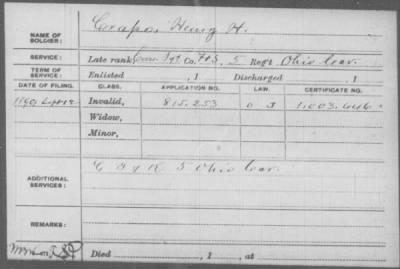 NAME OF SOLDIER: Crapo, Henry H.
SERVICE: Late rank Com. Sgt. Co. F & S, 5 Reg't Ohio Cav.
TERM OF SERVICE: Enlisted , 1 Discharged , 1
DATE OF FILING. CLASS. APPLICATION NO. LAW. CERTIFICATE NO.
1890 Invalid, 815.253 1.003.646
Widow,
Minor,
ADDITIONAL SERVICES: C & K 5 Ohio Cav.
REMARKS:
Died , 1 , at